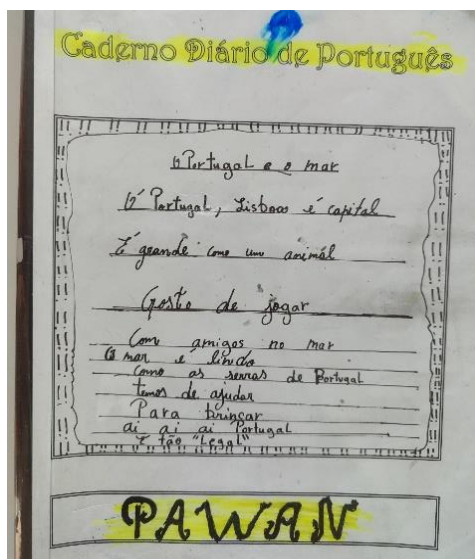 Caderno Diário de Português
O Portugal e o mar
Ó Portugal, Lisboa é capital
É grande como um animal
Gosto de jogar
Com amigos no mar
O mar é lindo
como as serras de Portugal
temos de ajudar
Para brincar
ai ai ai Portugal
É tão "Legal"
PAWAN